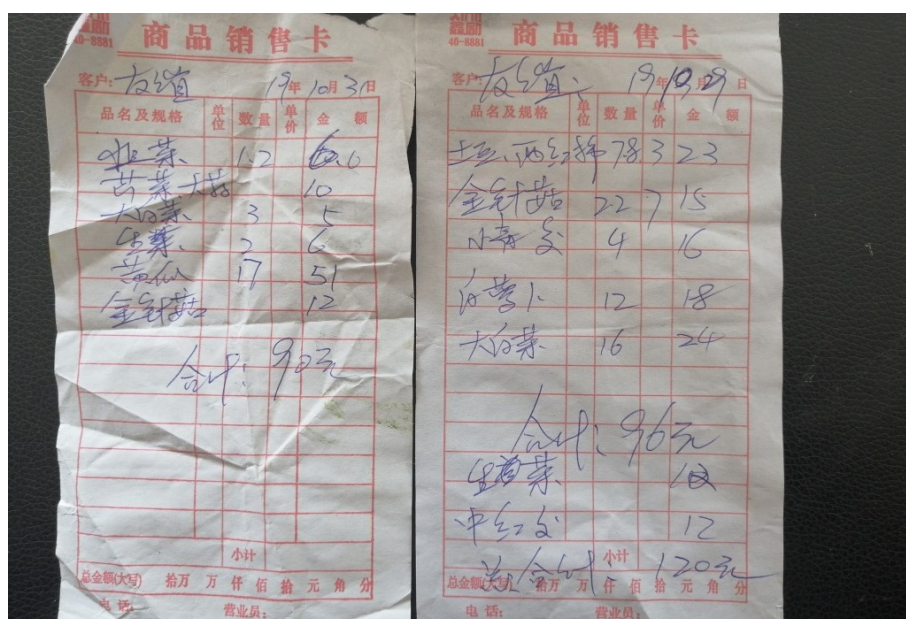 40-8881
商品销售卡
客户: 友缘 19年10月31日
品名及规格 单位 数量 单价 金额
韭菜 1.2 6.6
大菇 10
大白菜 3 5
生菜 2 6
黄瓜 17 51
金针菇 12
合计: 90元
小计
总金额(大写) 拾万 万 仟 佰 拾 元 角 分
电话: 营业员:
40-8881
商品销售卡
客户: 友缘 19年10月29日
品名及规格 单位 数量 单价 金额
土豆、西红柿 78 3 23
金针菇 22 7 15
小青 4 16
白萝卜 12 18
大白菜 16 24
合计: 96元
菜 12
中红 12
小计
总合计: 120元
总金额(大写) 拾万 万 仟 佰 拾 元 角 分
电话: 营业员: